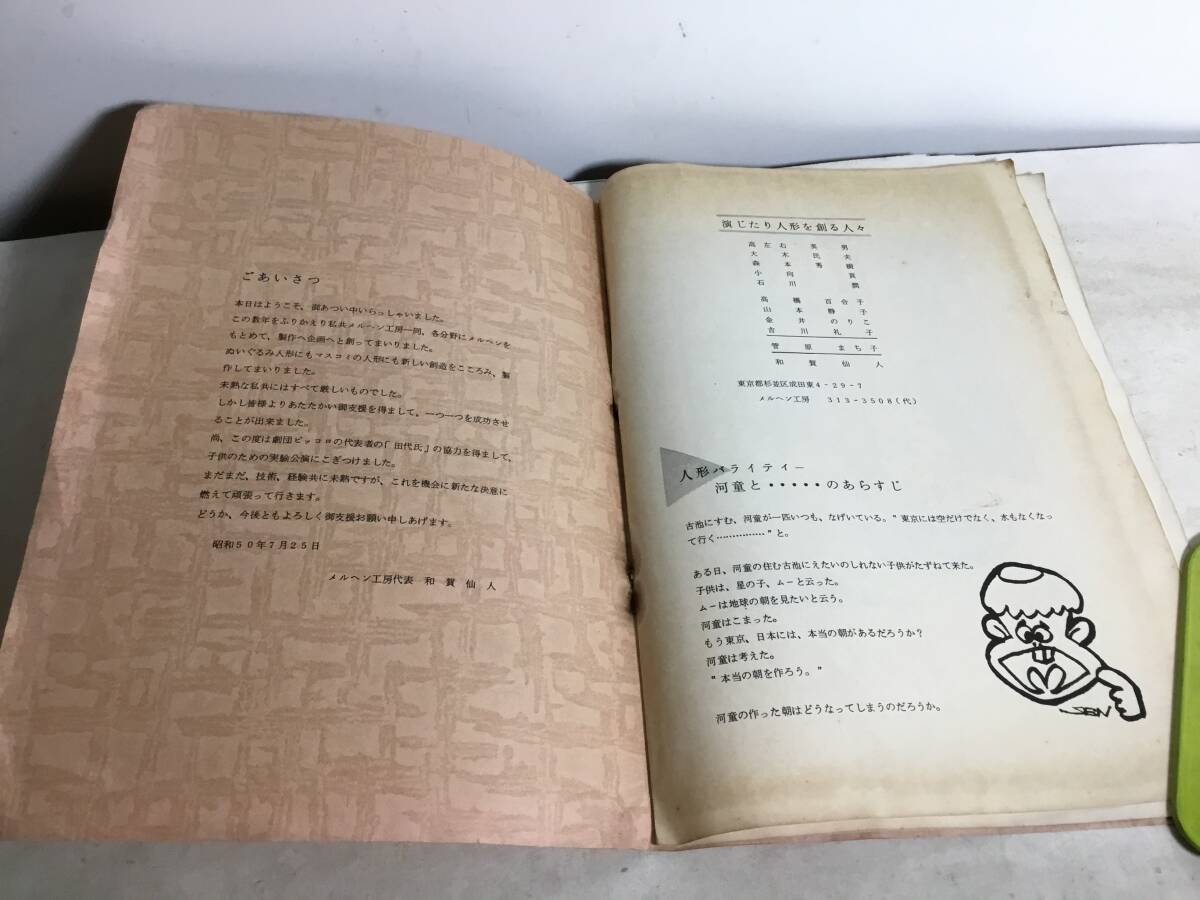 ごあいさつ
本日はようこそ、御あつい中いらっしゃいました。
この数年をふりかえり私共メルヘン工房一同、各分野にメルヘンを
もとめて、製作へ企画へと創ってまいりました。
ぬいぐるみ人形にもマスコミの人形にも新しい創造をこころみ、製
作してまいりました。
未熟な私共にはすべて厳しいものでした。
しかし皆様よりあたたかい御支援を得まして、一つ一つを成功させ
ることが出来ました。
尚、この度は劇団ピッコロの代表者の「田代氏」の協力を得まして、
子供のための実験公演にこぎつけました。
まだまだ、技術、経験共に未熟ですが、これを機会に新たな決意に
燃えて頑張って行きます。
どうか、今後ともよろしく御支援お願い申しあげます。
昭和50年7月25日
メルヘン工房代表 和賀仙人
演じたり人形を創る人々
高左右美男
大木民夫
森本秀樹
小向眞
石川潤
高橋百合子
山本静子
金井のりこ
吉川礼子
菅原まち子
和賀仙人
東京都杉並区成田東4-29-7
メルヘン工房 313-3508(代)
人形バライティー
河童と・・・・・のあらすじ
古池にすむ、河童が一匹いつも、なげいている。"東京には空だけでなく、水もなくなっ
て行く……………"と。
ある日、河童の住む古池にえたいのしれない子供がたずねて来た。
子供は、星の子、ムーと云った。
ムーは地球の朝を見たいと云う。
河童はこまった。
もう東京、日本には、本当の朝があるだろうか?
河童は考えた。
"本当の朝を作ろう。"
河童の作った朝はどうなってしまうのだろうか。